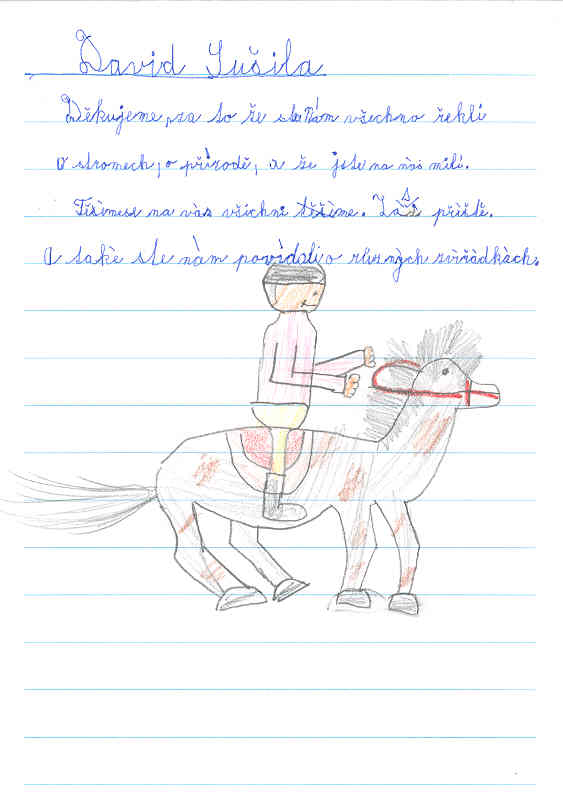 David Sušila
Děkujeme, za to že ste nám všechno řekli
o stromech, o přírodě, a že jste na nás milí.
na vás všichni těšíme. Za příště.
A také ste nám povídali o různých zviřádkách.